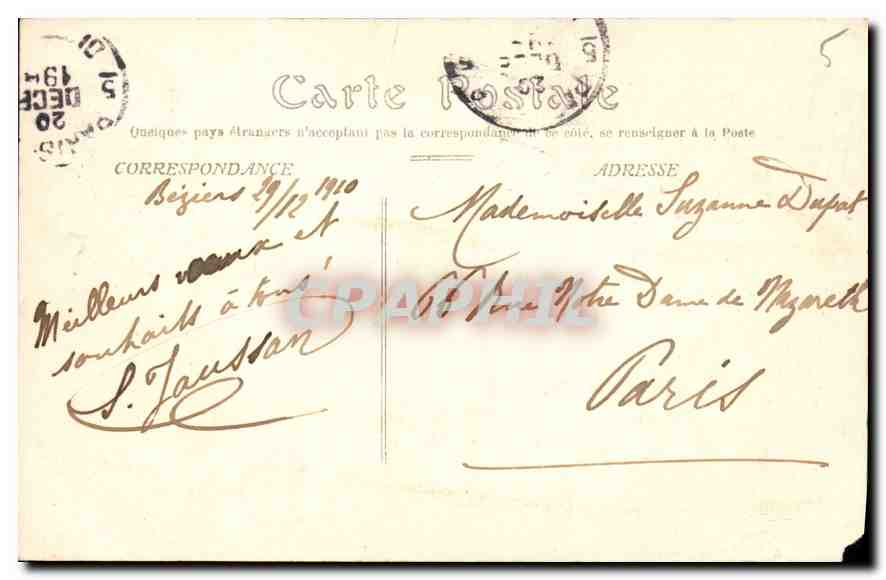 5
Carte Postale
Quelques pays étrangers n'acceptant pas la correspondance de ce côté, se renseigner à la Poste
CORRESPONDANCE
Béziers 29/12 1910
Meilleurs vœux et
souhaits à tous!
S. Jaussan
ADRESSE
Mademoiselle Suzanne Dupat
66 Rue Notre Dame de Nazareth
Paris
PARIS
20
DECE
CPAPHIL